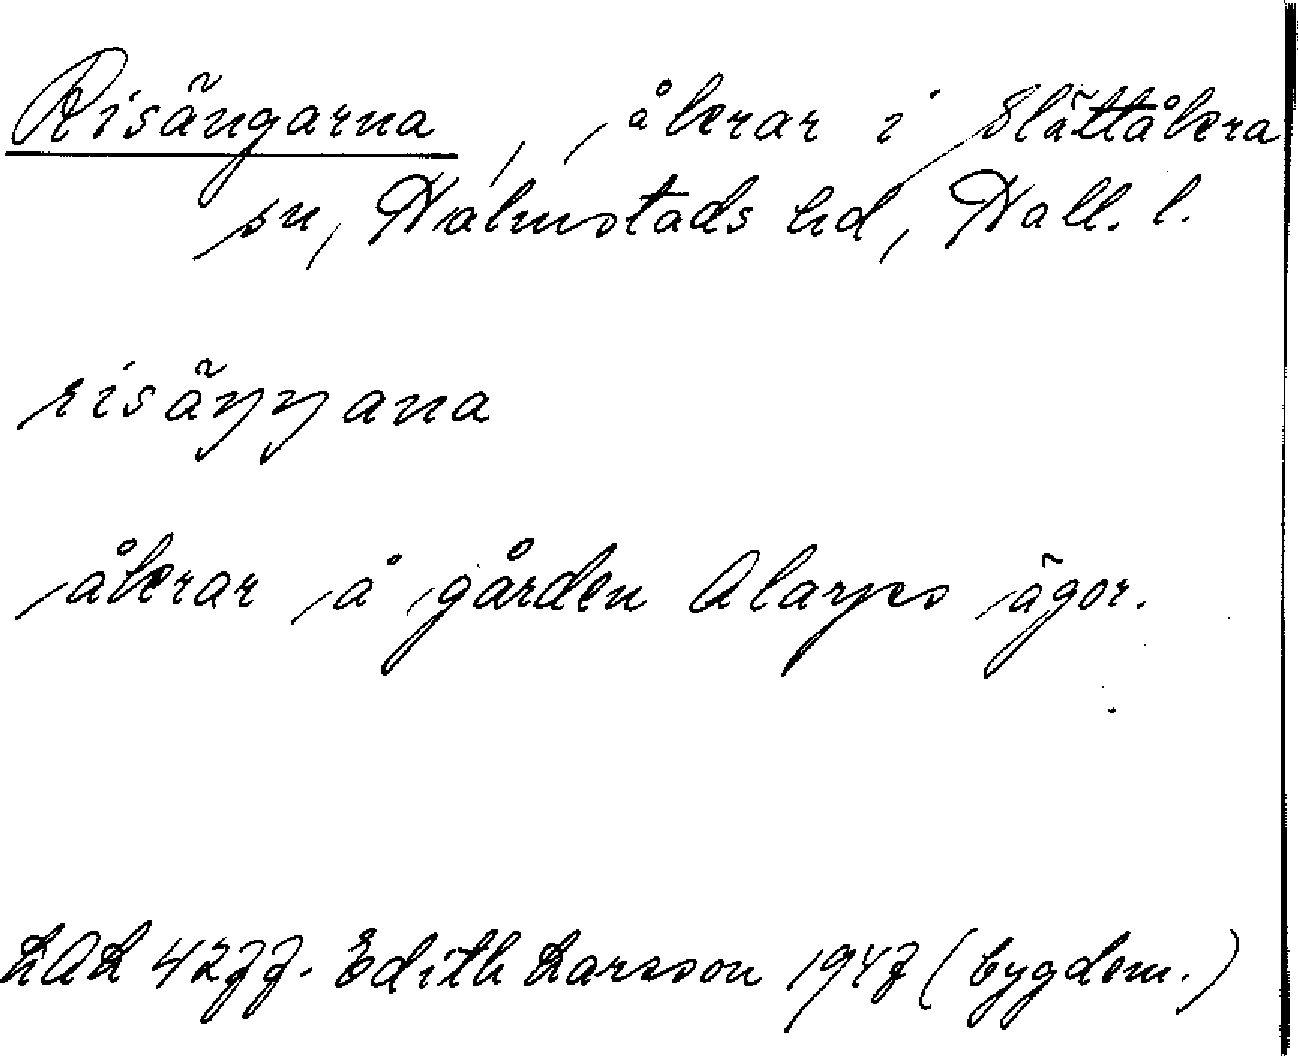 Risängarna, åkrar i Slättåkra
sn, Halmstads hd, Hall. l.
risäŋŋana
åkrar å gården Alarps ägor.
LAL 4277. Edith Larsson 1947 (bygdem.)